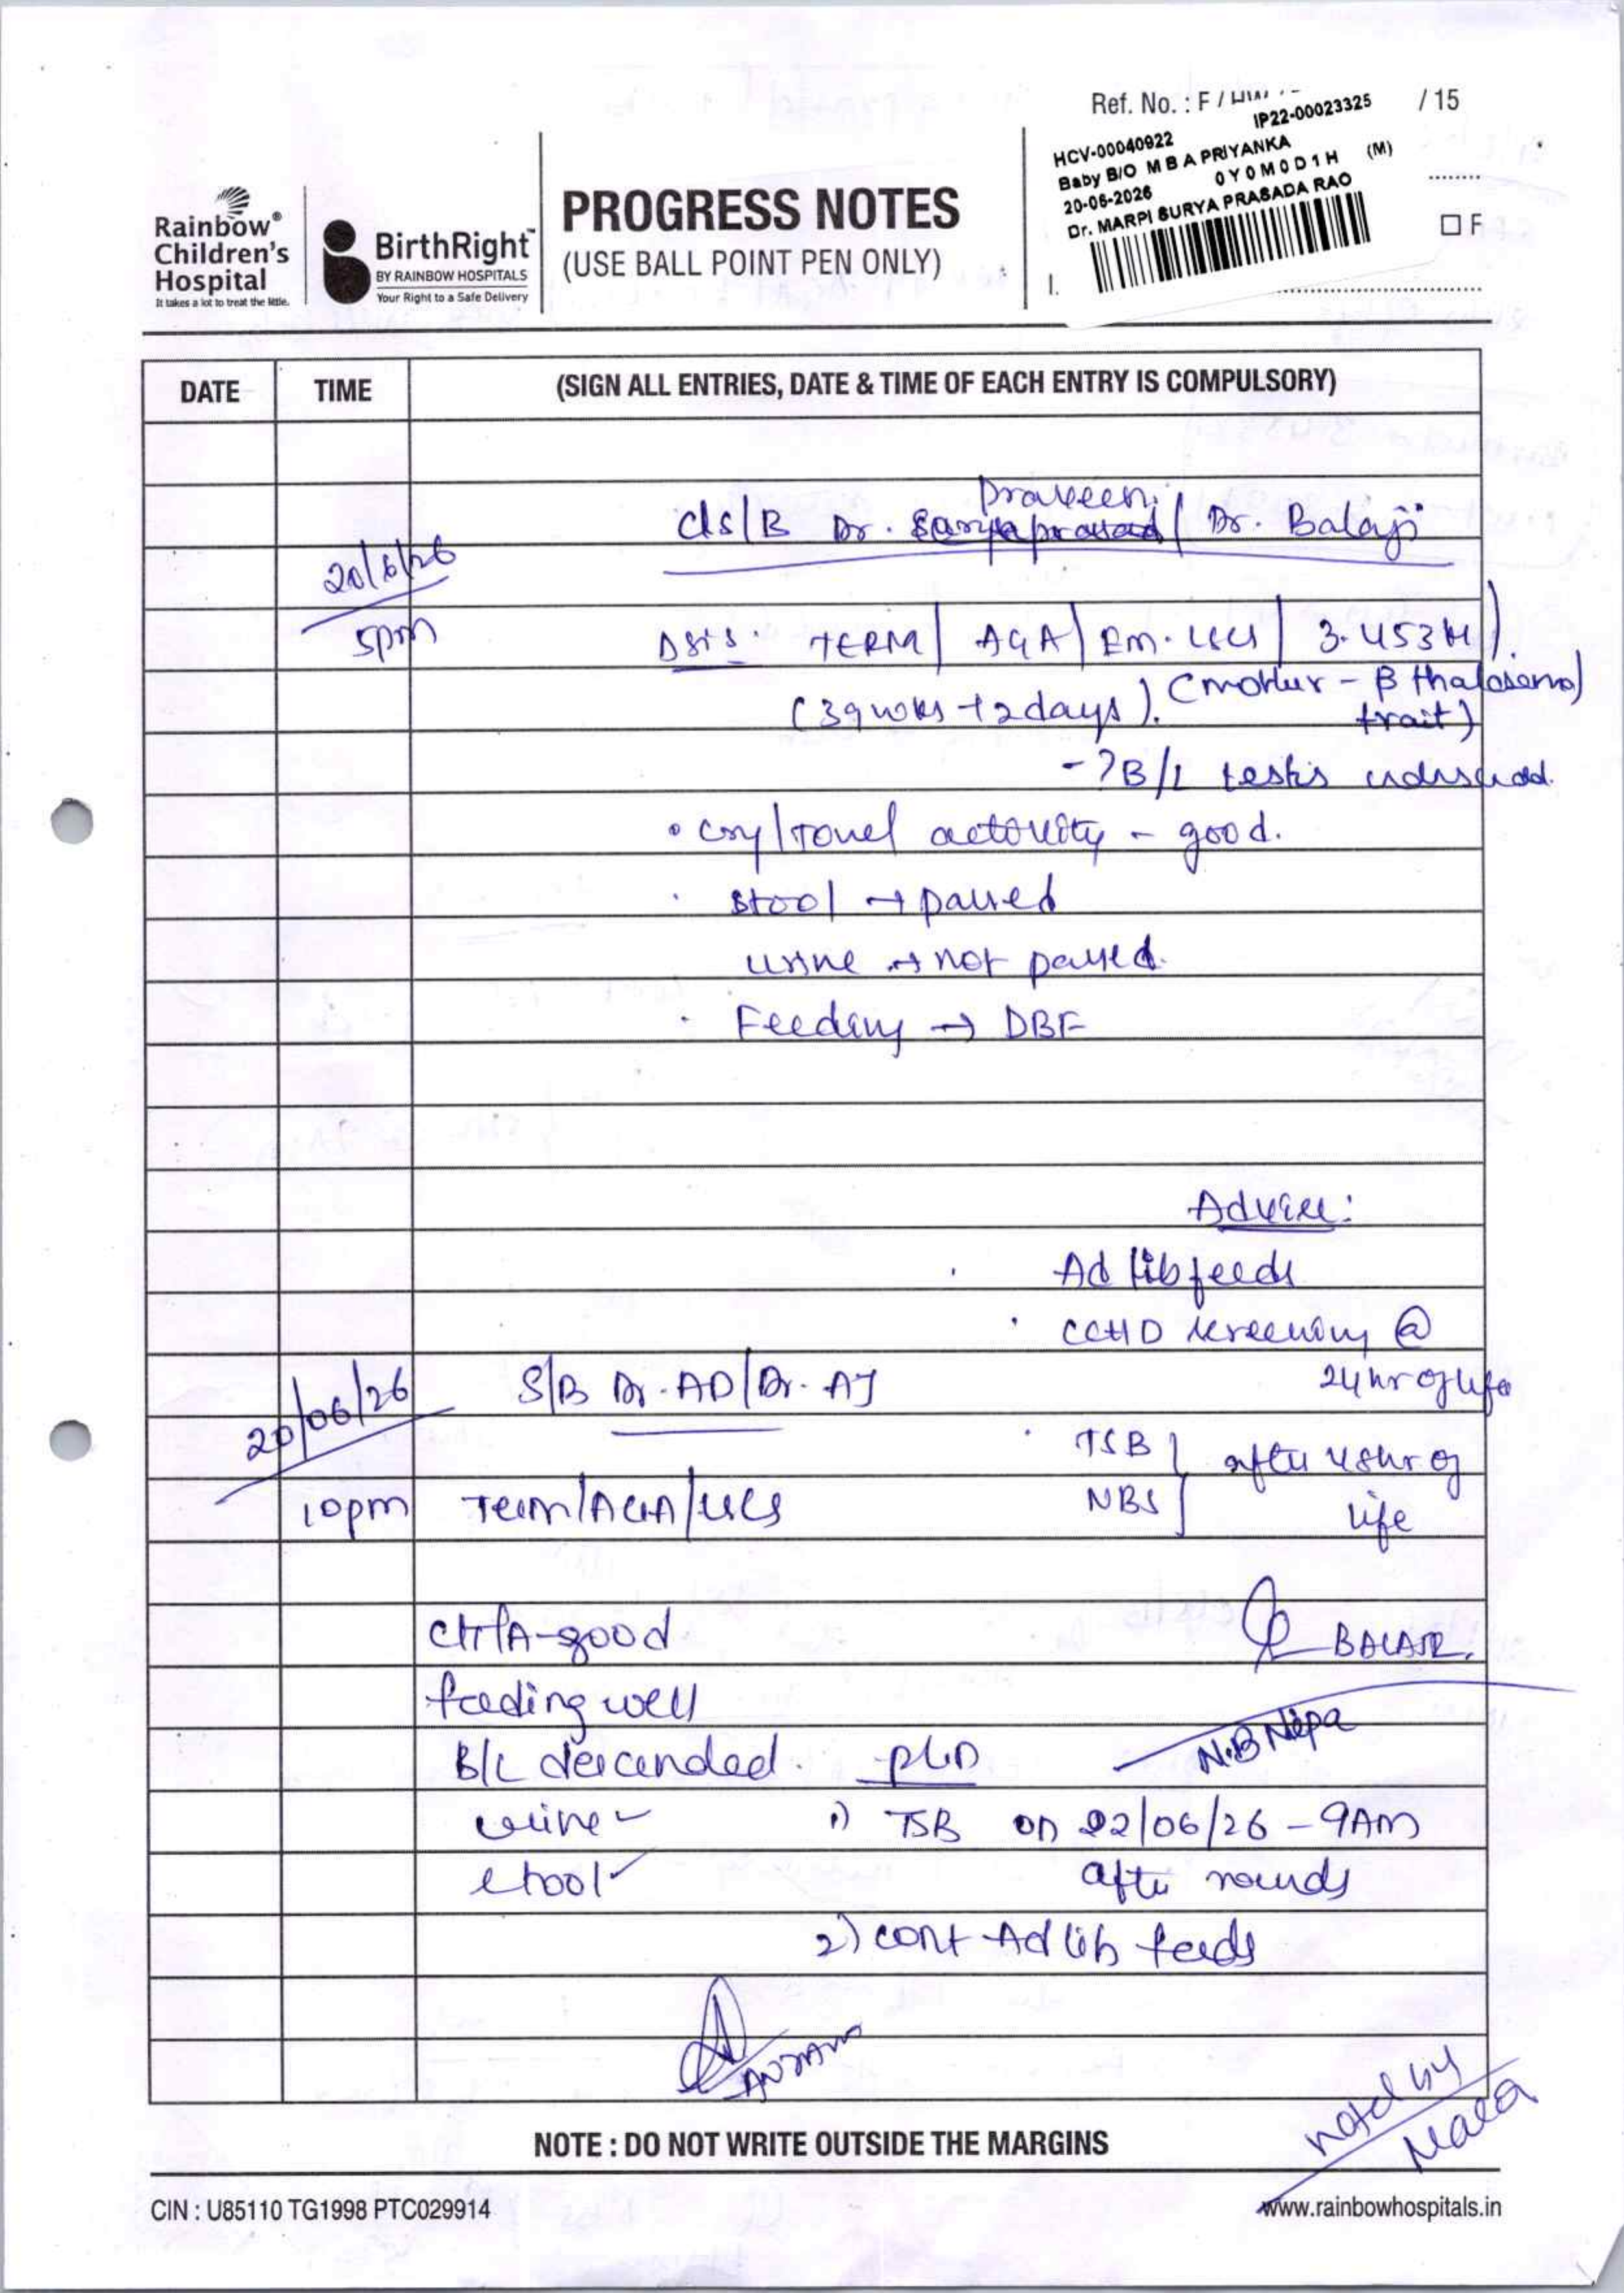 Ref. No. : F / HW / 15
HCV-00040922 IP22-00023325
Baby B/O M B A PRIYANKA
20-06-2026 0Y0M0D1H (M)
Dr. MARPI SURYA PRASADA RAO
F
Rainbow®
Children's
Hospital
It takes a lot to treat the little.
BirthRight™
BY RAINBOW HOSPITALS
Your Right to a Safe Delivery
PROGRESS NOTES
(USE BALL POINT PEN ONLY)
DATE TIME (SIGN ALL ENTRIES, DATE & TIME OF EACH ENTRY IS COMPULSORY)
Praveen
C/s/B Dr. / Dr. Balaji
20/6/26
5pm
TERM / AGA / Em. LSCS / 3.453
(39 wks + 2 days). (mother - β thalasema
trait)
- ? B/L testis
• cry / activity - good.
• stool → passed
urine → not passed.
• Feeding → DBF
Advice:
• Ad lib feeds
• CCHD screening @
24 hr of life
20/06/26
S/B Dr. AD / Dr. AJ
• TSB
NBS
after 48hr of
life
10pm
Term/AGA/LSCS
CTA-good
BALAJI.
feeding well
N.B Nipa
B/L descended.
urine ✓
1) TSB on 22/06/26 - 9AM
after rounds
stool ✓
2) cont Ad lib feeds
noted by
Mala
NOTE : DO NOT WRITE OUTSIDE THE MARGINS
CIN : U85110 TG1998 PTC029914
www.rainbowhospitals.in